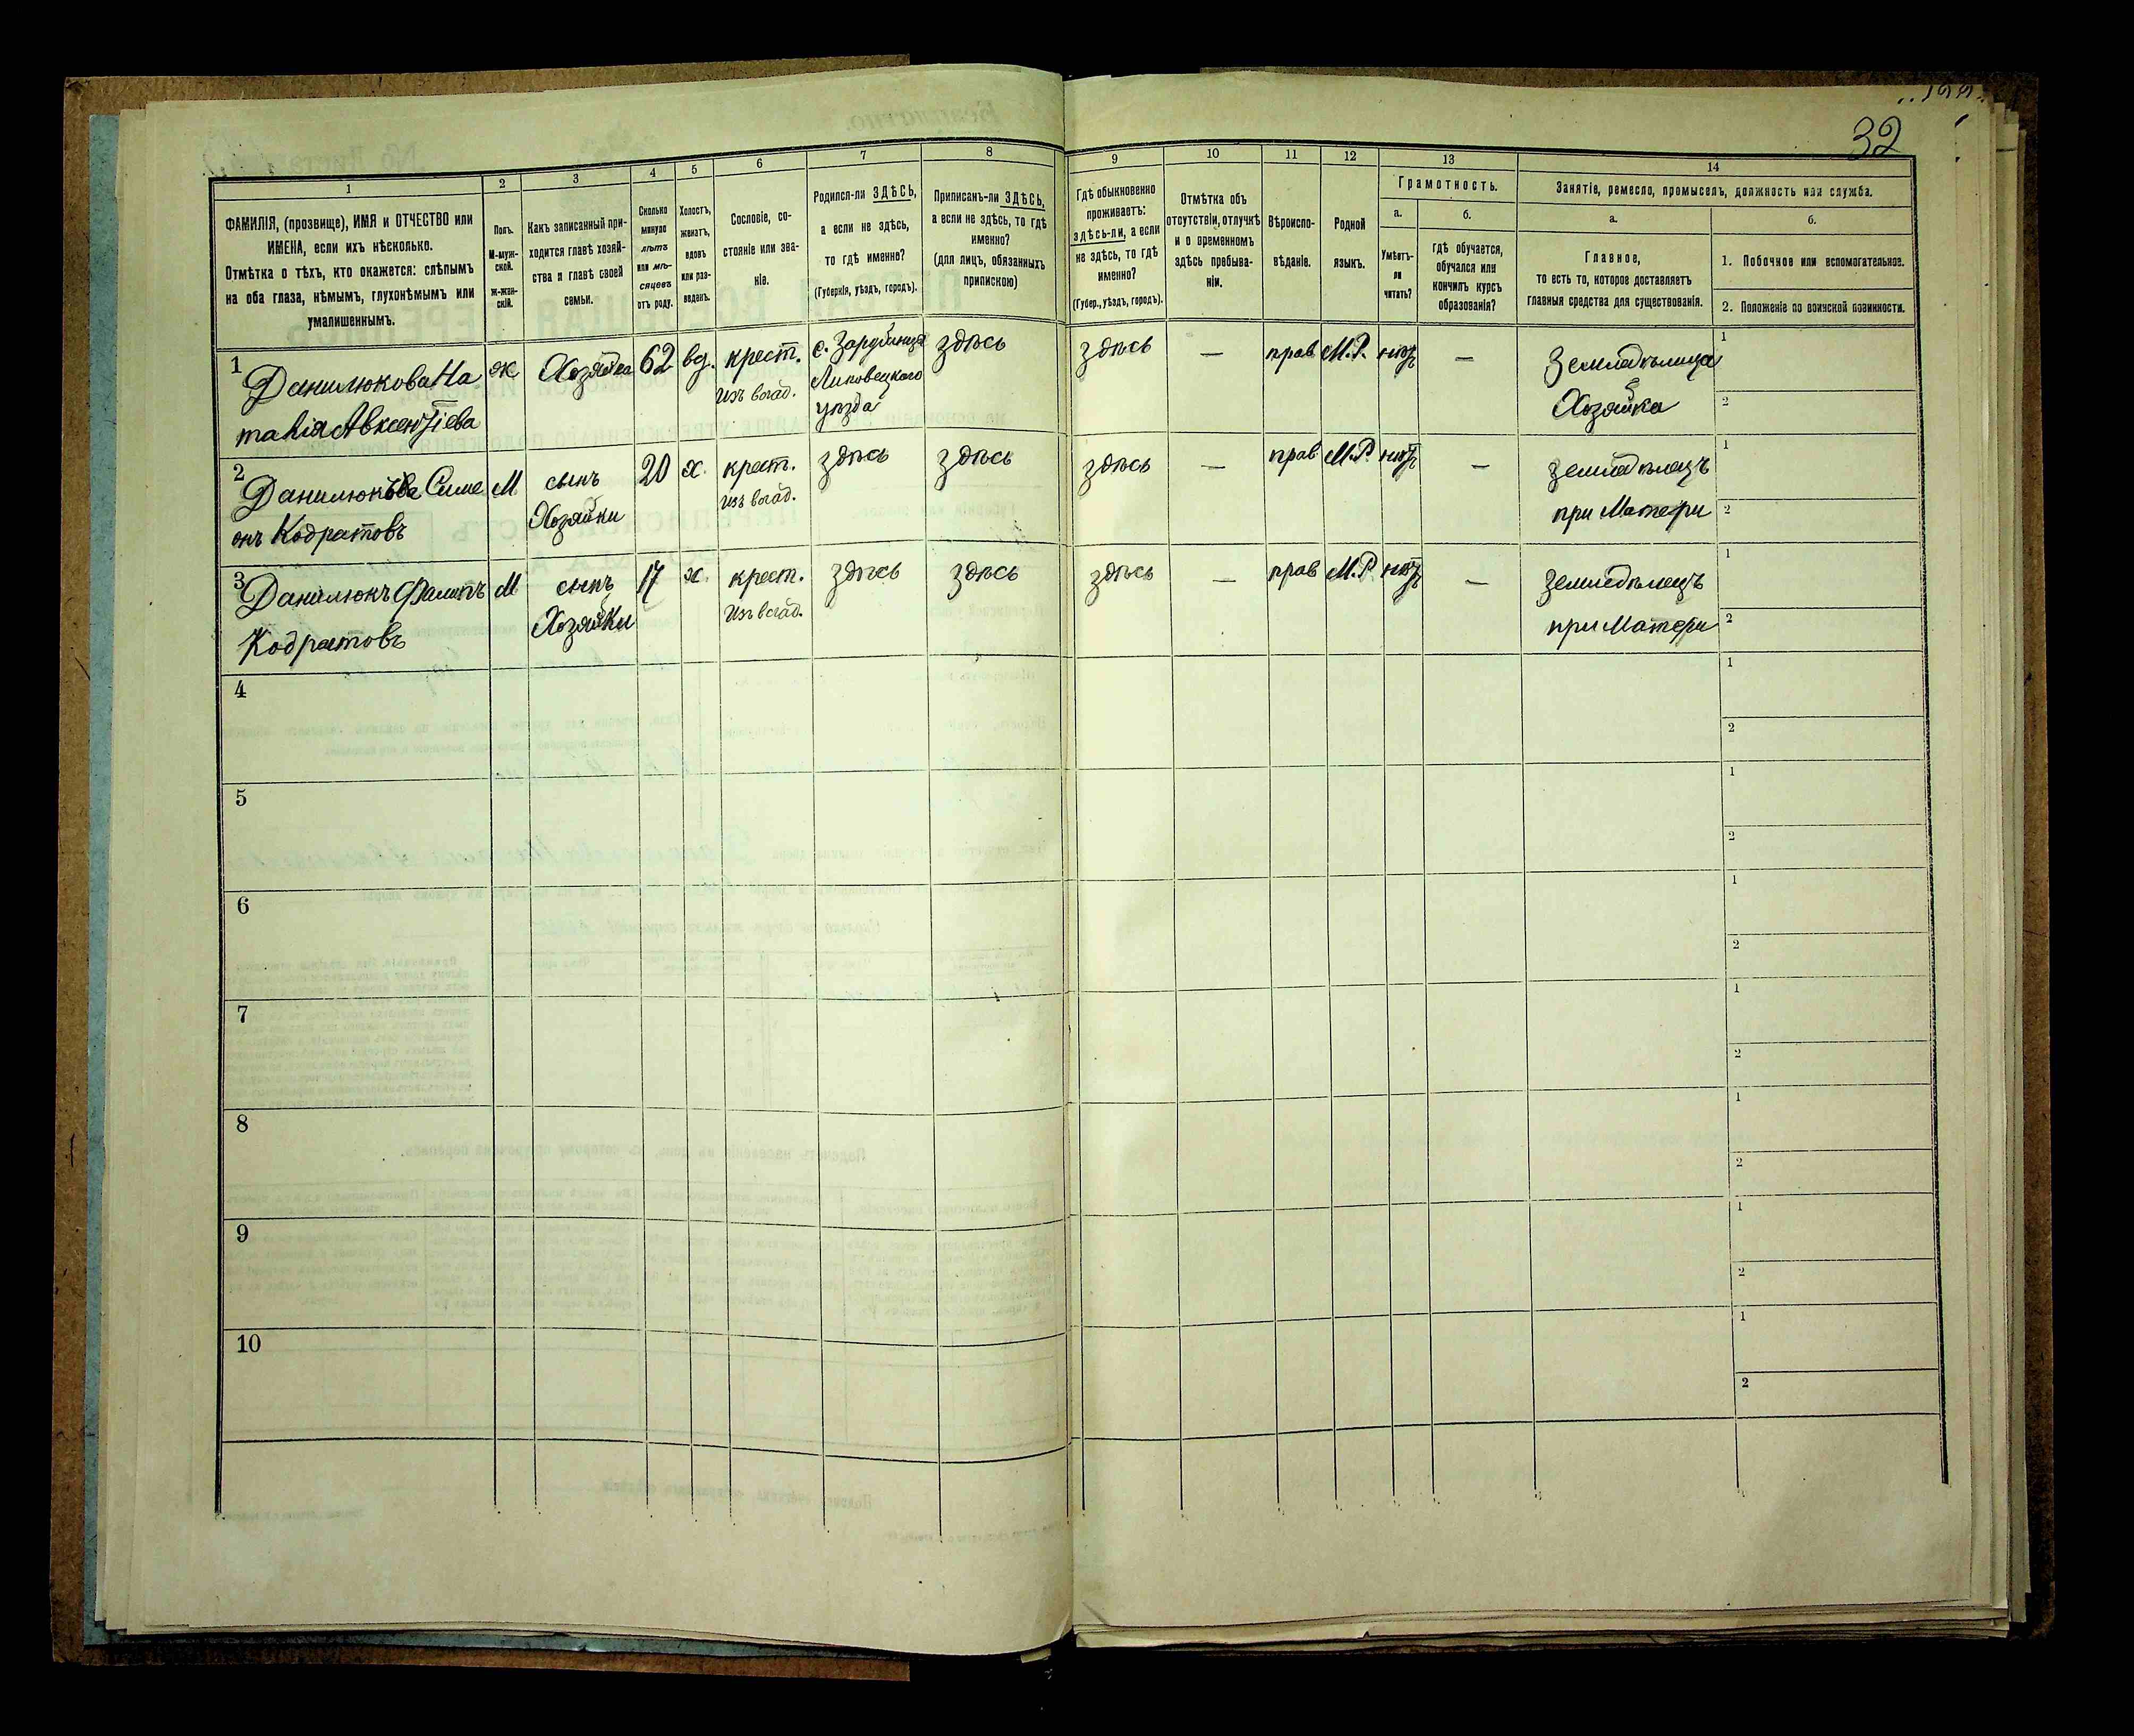 32
1 2 3 4 5 6 7 8 9 10 11 12 13 14
ФАМИЛІЯ, (прозвище), ИМЯ и ОТЧЕСТВО или
ИМЕНА, если ихъ нѣсколько.
Отмѣтка о тѣхъ, кто окажется: слѣпымъ
на оба глаза, нѣмымъ, глухонѣмымъ или
умалишеннымъ.
Полъ.
М-муж-
ской.
ж-жен-
скій.
Какъ записанный при-
ходится главѣ хозяй-
ства и главѣ своей
семьи.
Сколько
минуло
лѣтъ
или мѣ-
сяцевъ
отъ роду.
Холостъ,
женатъ,
вдовъ
или раз-
веденъ.
Сословіе, со-
стояніе или зва-
ніе.
Родился-ли ЗДѢСЬ,
а если не здѣсь,
то гдѣ именно?
(Губернія, уѣздъ, городъ).
Приписанъ-ли ЗДѢСЬ,
а если не здѣсь, то гдѣ
именно?
(для лицъ, обязанныхъ
припискою)
Гдѣ обыкновенно
проживаетъ:
здѣсь-ли, а если
не здѣсь, то гдѣ
именно?
(Губер., уѣздъ, городъ).
Отмѣтка объ
отсутствіи, отлучкѣ
и о временномъ
здѣсь пребыва-
ніи.
Вѣроиспо-
вѣданіе.
Родной
языкъ.
Грамотность.
а.
Умѣетъ-
ли
читать?
б.
гдѣ обучается,
обучался или
кончилъ курсъ
образованія?
Занятіе, ремесло, промыселъ, должность или служба.
а.
Главное,
то есть то, которое доставляетъ
главныя средства для существованія.
б.
1. Побочное или вспомогательное.
2. Положеніе по воинской повинности.
1 Данилюкова На ж Хозяйка 62 вд. крест. с. Зарубинцы здѣсь здѣсь — прав М.Р. нѣтъ — Земледѣлица 1
талія Авксентіева изъ влад. Липовецкаго Хозяйка 2
уѣзда
2 Данилюковъ Симе М сынъ 20 х. крест. здѣсь здѣсь здѣсь — прав М.Р. нѣтъ — земледѣлецъ 1
онъ Кодратовъ Хозяйки изъ влад. при Матери 2
3 Данилюкъ Филипъ М сынъ 17 х. крест. здѣсь здѣсь здѣсь — прав М.Р. нѣтъ — земледѣлецъ 1
Кодратовъ Хозяйки изъ влад. при Матери 2
4 1
2
5 1
2
6 1
2
7 1
2
8 1
2
9 1
2
10 1
2